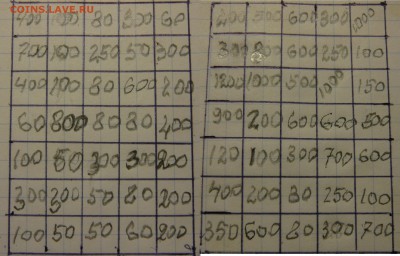 COINS.LAVE.RU
400 100 80 300 60
700 100 250 50 300
400 100 80 600 200
60 800 80 80 400
100 50 300 300 200
300 300 50 80 200
100 50 50 60 200
200 500 600 300 1000
300 200 600 250 100
1200 1000 500 1000 150
900 200 600 600 500
120 100 300 700 600
400 200 80 250 100
350 600 80 300 700